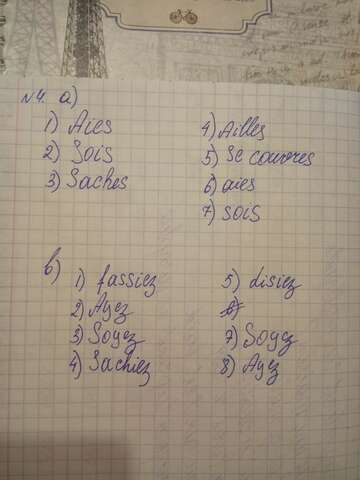 №4. a)
1) Aies
2) Sois
3) Saches
4) Ailles
5) Se couvres
6) aies
7) sois
b)
1) fassiez
2) Ayez
3) Soyez
4) Sachiez
5) disiez
6)
7) Soyez
8) Ayez